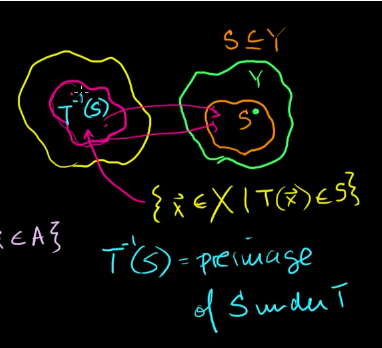 S ⊆ Y
Y
T⁻¹(S)
S
{x⃗ ∈ X | T(x⃗) ∈ S}
∈ A}
T⁻¹(S) = preimage
of S under T